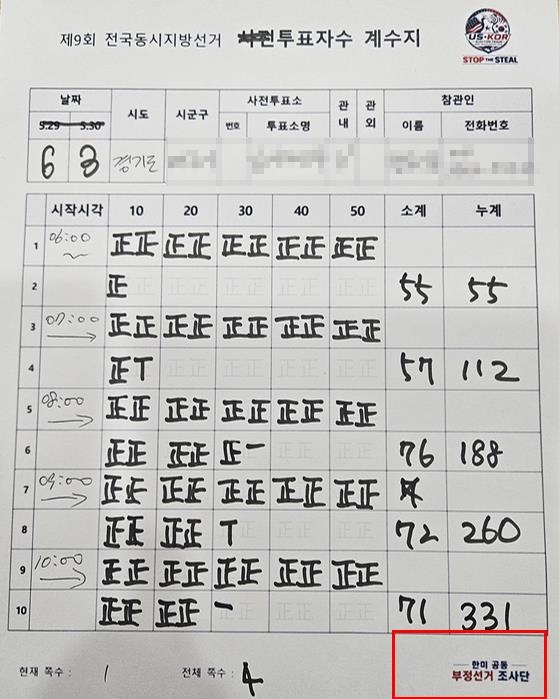 제9회 전국동시지방선거 사전투표자수 계수지
US★KOR
STOP THE STEAL
날짜 시도 시군구 사전투표소 관내 관외 참관인
5.29 5.30 번호 투표소명 이름 전화번호
6 3 경기도
시작시각 10 20 30 40 50 소계 누계
1 06:00 正正 正正 正正 正正 正正
2 正 55 55
3 07:00 正正 正正 正正 正正 正正
4 正T 57 112
5 08:00 正正 正正 正正 正正 正正
6 正正 正正 正一 76 188
7 09:00 正正 正正 正正 正正 正正
8 正正 正正 T 72 260
9 10:00 正正 正正 正正 正正 正正
10 正正 正正 一 71 331
현재 쪽수 : 1 전체 쪽수 : 4
한미 공동
부정선거 조사단